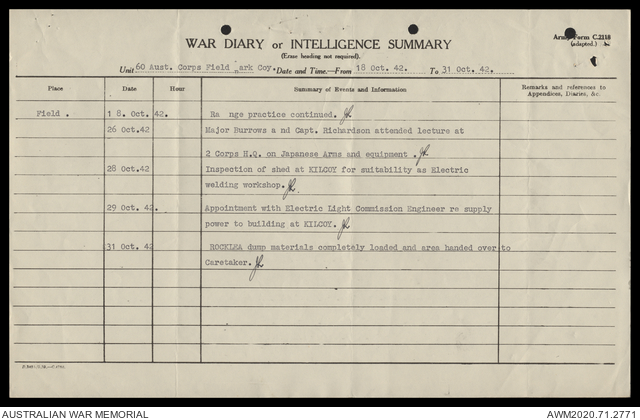 Army Form C.2118
(adapted.)
WAR DIARY or INTELLIGENCE SUMMARY
(Erase heading not required).
Unit 60 Aust. Corps Field ark Coy. Date and Time.—From 18 Oct. 42. To 31 Oct. 42.
Place Date Hour Summary of Events and Information Remarks and references to
Appendices, Diaries, &c.
Field . 1 8. Oct. 42. Ra nge practice continued.
26 Oct.42 Major Burrows a nd Capt. Richardson attended lecture at
2 Corps H.Q. on Japanese Arms and equipment .
28 Oct.42 Inspection of shed at KILCOY for suitability as Electric
welding workshop.
29 Oct. 42. Appointment with Electric Light Commission Engineer re supply
power to building at KILCOY.
31 Oct. 42 ROCKLEA dump materials completely loaded and area handed over to
Caretaker.
AUSTRALIAN WAR MEMORIAL AWM2020.71.2771